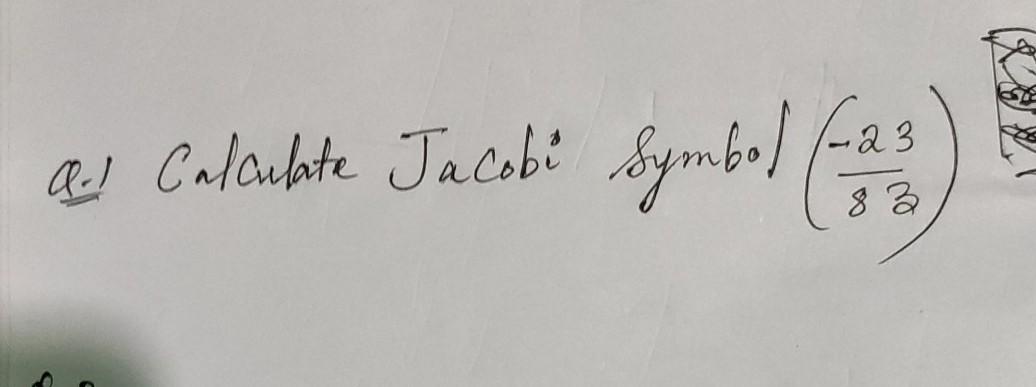 Q.1 Calculate Jacobi Symbol (-23/83)